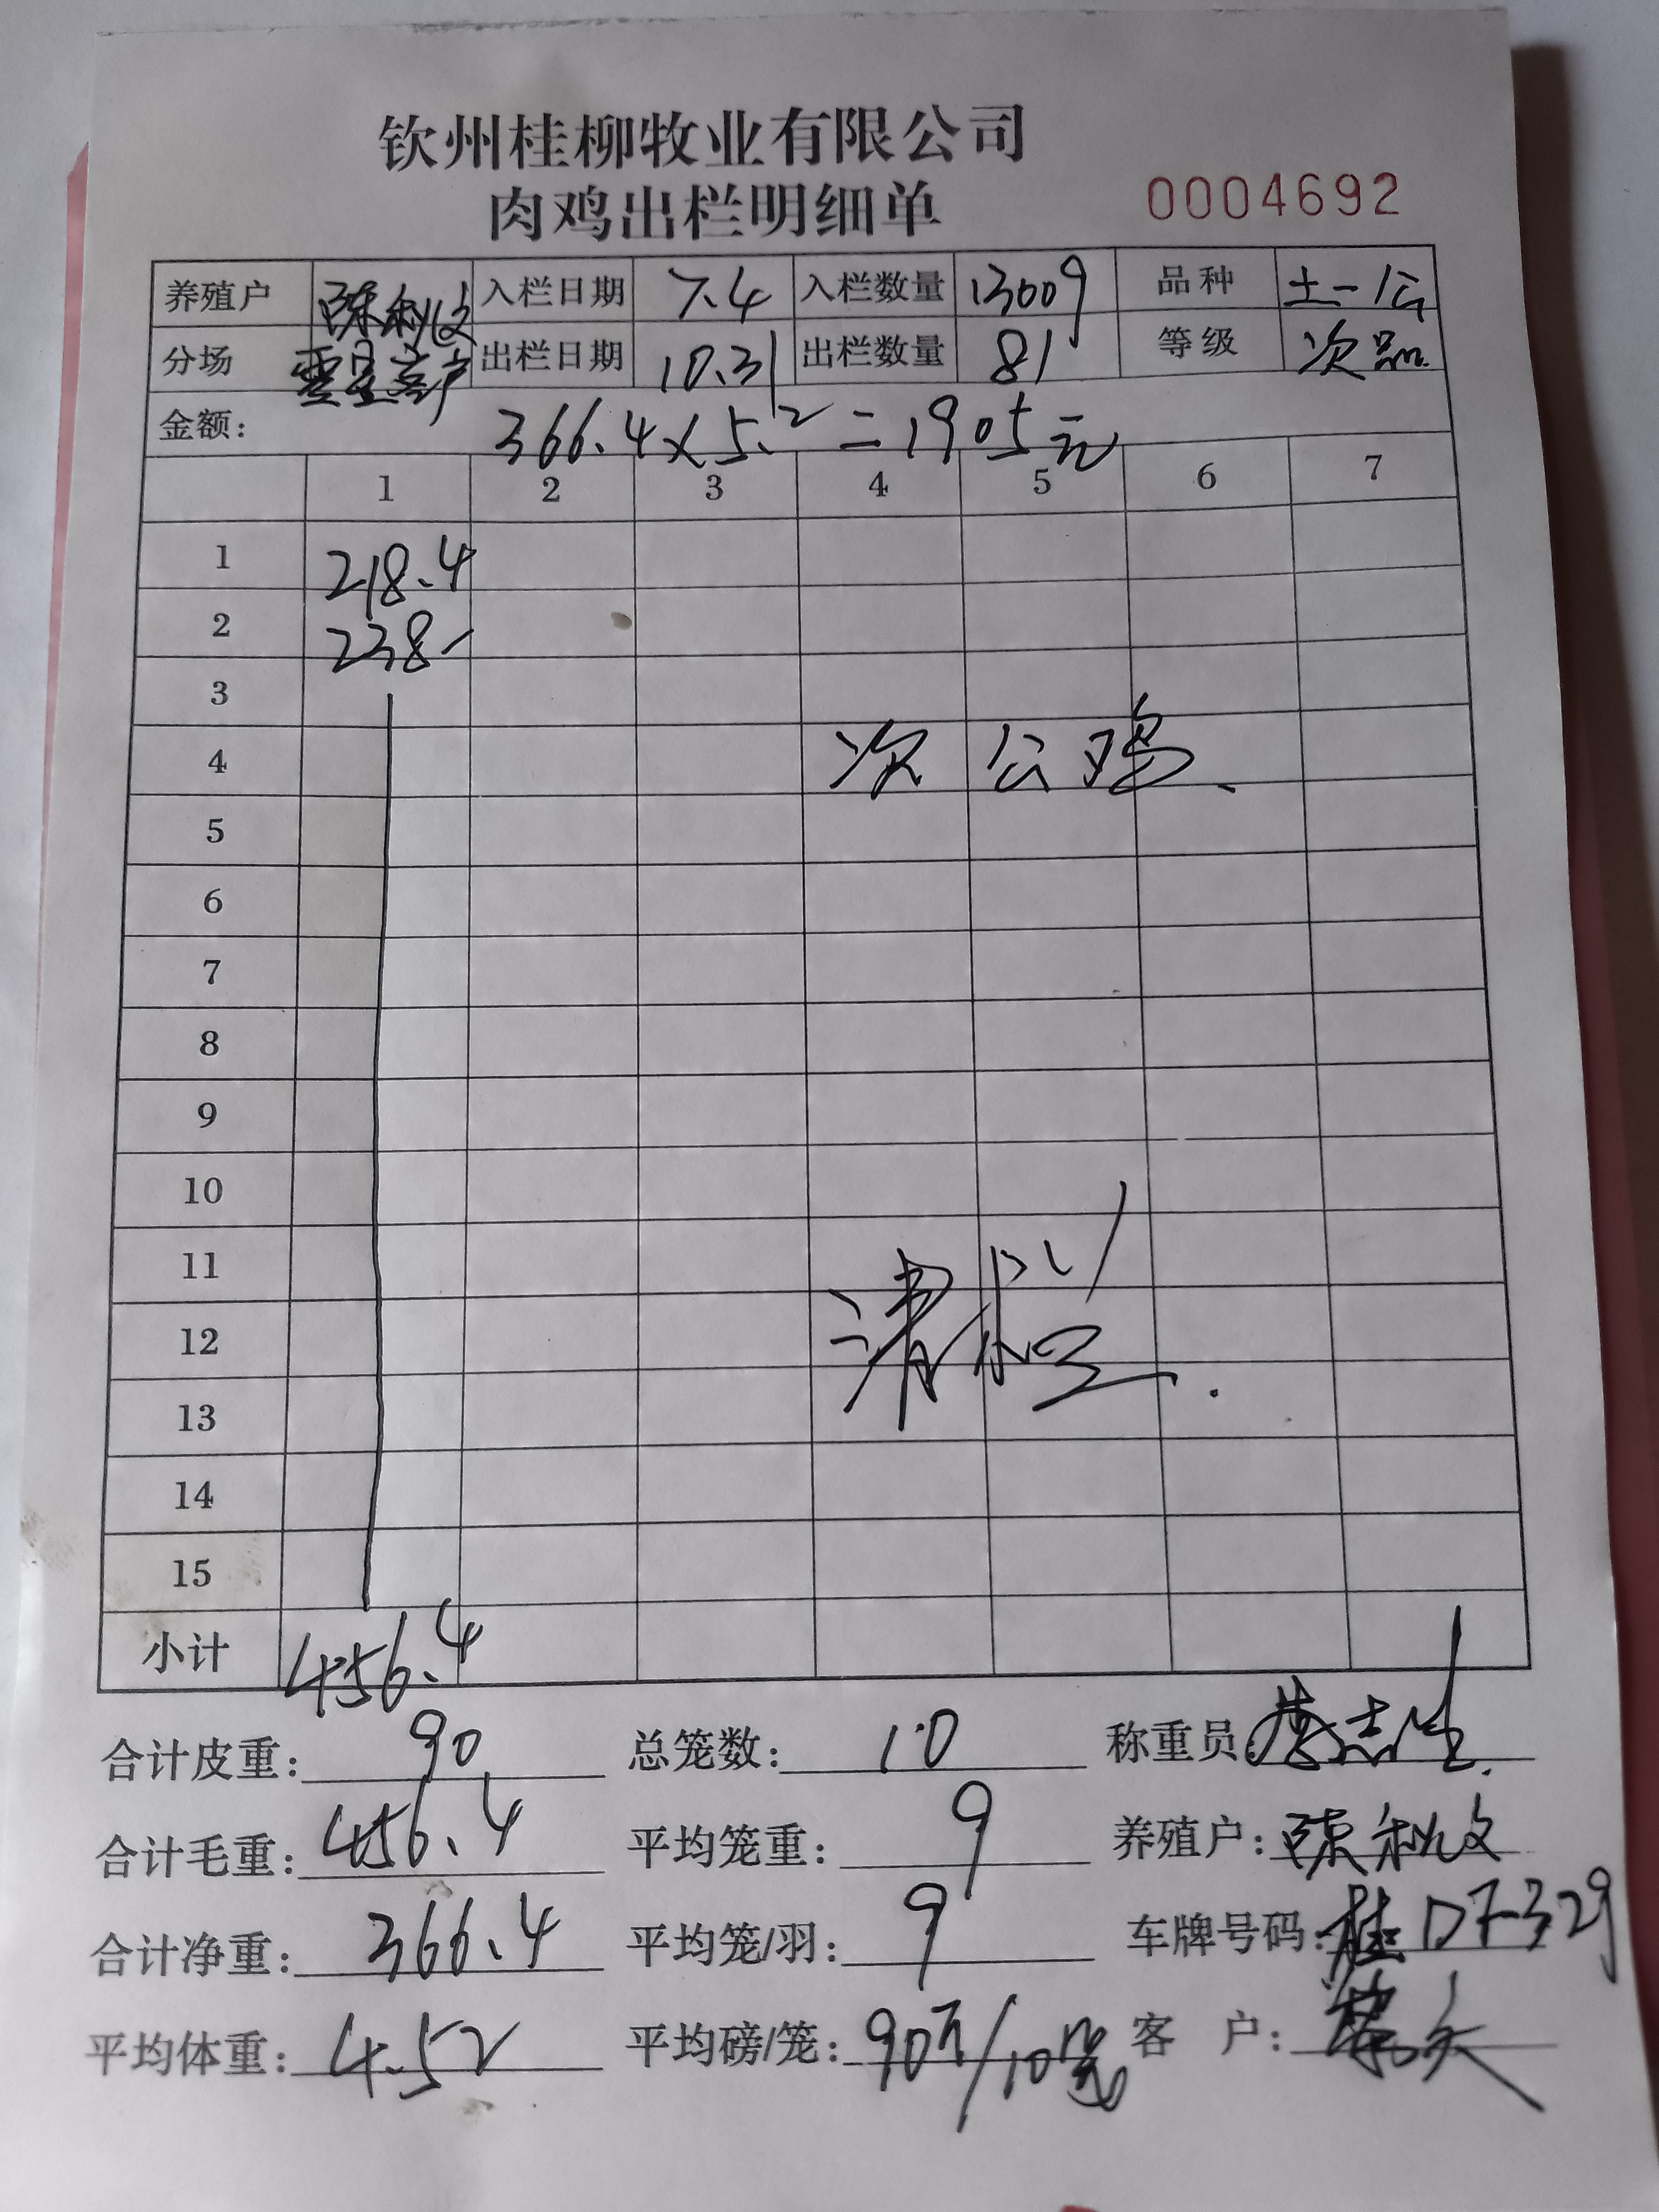 钦州桂柳牧业有限公司
肉鸡出栏明细单 0004692
养殖户 陈 入栏日期 7.4 入栏数量 13009 品种 土一公
分场 出栏日期 10.31 出栏数量 81 等级 次品
金额: 366.4×5.2=1905元
1 2 3 4 5 6 7
1 218.4
2 238-
3
4 次公鸡.
5
6
7
8
9
10
11
12 清栏.
13
14
15
小计 456.4
合计皮重: 90 总笼数: 10 称重员:
合计毛重: 456.4 平均笼重: 9 养殖户: 陈
合计净重: 366.4 平均笼/羽: 9 车牌号码: 桂D7-329
平均体重: 4.52 平均磅/笼: 90斤/10笼 客 户: